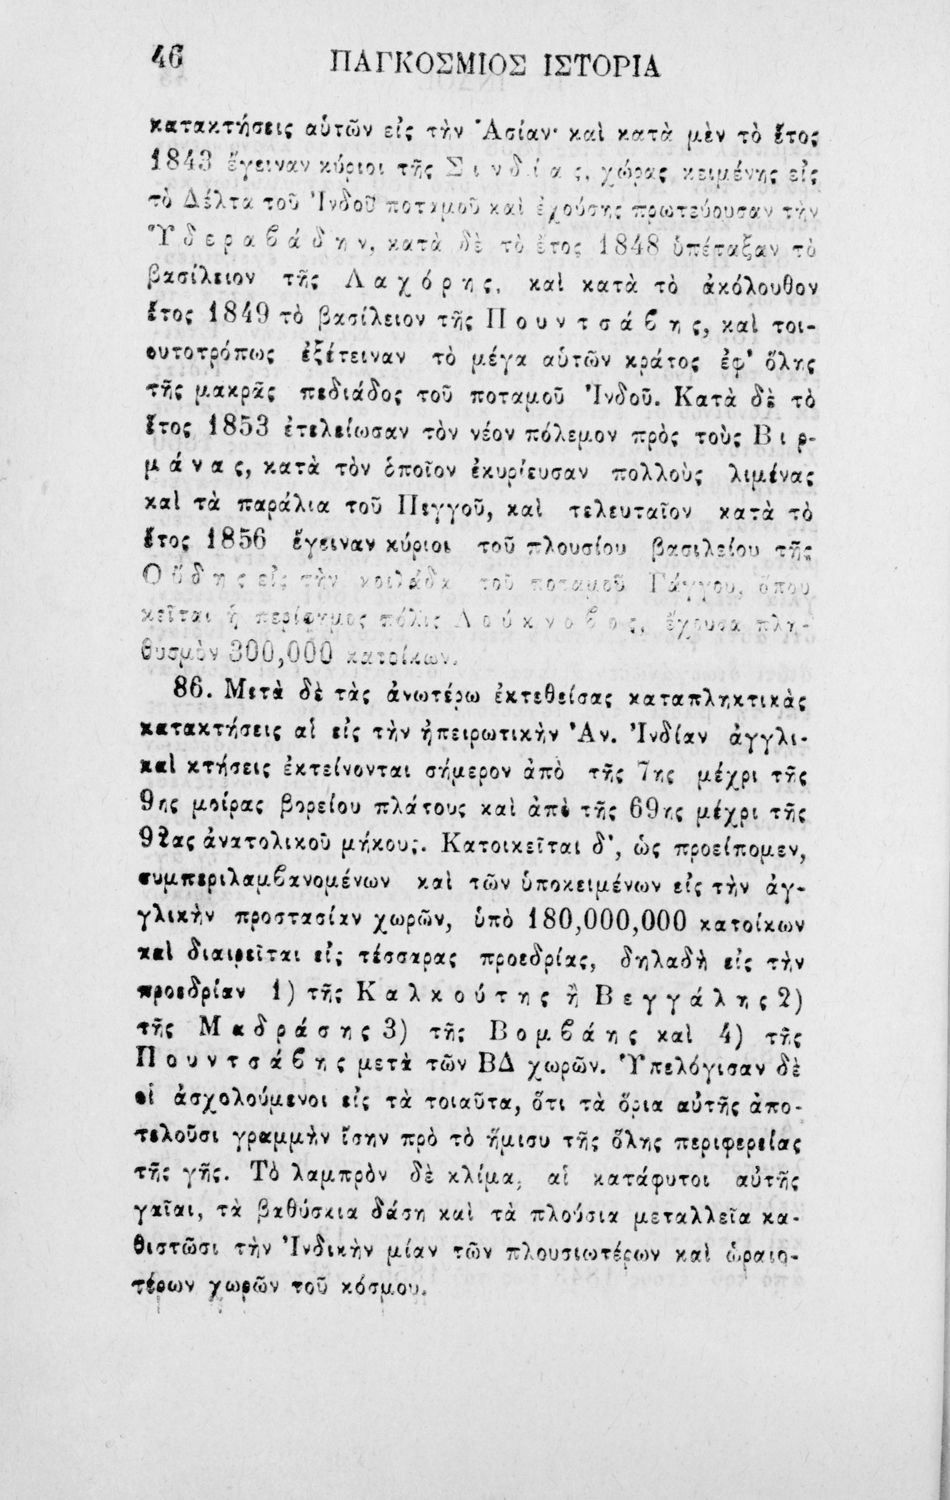 46
ΠΑΓΚΟΣΜΙΟΣ ΙΣΤΟΡΙΑ
κατακτήσεις αὑτῶν εἰς τὴν Ἀσίαν· καὶ κατὰ μὲν τὸ ἔτος
1843 ἔγειναν κύριοι τῆς Σινδίας, χώρας κειμένης εἰς
τὸ Δέλτα τοῦ Ἰνδοῦ ποταμοῦ καὶ ἐχούσης πρωτεύουσαν τὴν
Ὑδεραβάδην, κατὰ δὲ τὸ ἔτος 1848 ὑπέταξαν τὸ
βασίλειον τῆς Λαχόρης, καὶ κατὰ τὸ ἀκόλουθον
ἔτος 1849 τὸ βασίλειον τῆς Πουντσάβης, καὶ τοι-
ουτοτρόπως ἐξέτειναν τὸ μέγα αὑτῶν κράτος ἐφ' ὅλης
τῆς μακρᾶς πεδιάδος τοῦ ποταμοῦ Ἰνδοῦ. Κατὰ δὲ τὸ
ἔτος 1853 ἐτελείωσαν τὸν νέον πόλεμον πρὸς τοὺς Βιρ-
μάνας, κατὰ τὸν ὁποῖον ἐκυρίευσαν πολλοὺς λιμένας
καὶ τὰ παράλια τοῦ Πεγγοῦ, καὶ τελευταῖον κατὰ τὸ
ἔτος 1856 ἔγειναν κύριοι τοῦ πλουσίου βασιλείου τῆς
Οὔδης εἰς τὴν κοιλάδα τοῦ ποταμοῦ Γάγγου, ὅπου
κεῖται ἡ περίφημος πόλις Λούκνοβος, ἔχουσα πλη-
θυσμὸν 300,000 κατοίκων.
86. Μετὰ δὲ τὰς ἀνωτέρω ἐκτεθείσας καταπληκτικὰς
κατακτήσεις αἱ εἰς τὴν ἠπειρωτικὴν Ἀν. Ἰνδίαν ἀγγλι-
καὶ κτήσεις ἐκτείνονται σήμερον ἀπὸ τῆς 7ης μέχρι τῆς
9ης μοίρας βορείου πλάτους καὶ ἀπὸ τῆς 69ης μέχρι τῆς
92ας ἀνατολικοῦ μήκους. Κατοικεῖται δ', ὡς προείπομεν,
συμπεριλαμβανομένων καὶ τῶν ὑποκειμένων εἰς τὴν ἀγ-
γλικὴν προστασίαν χωρῶν, ὑπὸ 180,000,000 κατοίκων
καὶ διαιρεῖται εἰς τέσσαρας προεδρίας, δηλαδὴ εἰς τὴν
προεδρίαν 1) τῆς Καλκούτης ἢ Βεγγάλης 2)
τῆς Μαδράσης 3) τῆς Βομβάης καὶ 4) τῆς
Πουντσάβης μετὰ τῶν ΒΔ χωρῶν. Ὑπελόγισαν δὲ
οἱ ἀσχολούμενοι εἰς τὰ τοιαῦτα, ὅτι τὰ ὅρια αὐτῆς ἀπο-
τελοῦσι γραμμὴν ἴσην πρὸ τὸ ἥμισυ τῆς ὅλης περιφερείας
τῆς γῆς. Τὸ λαμπρὸν δὲ κλίμα, αἱ κατάφυτοι αὐτῆς
γαῖαι, τὰ βαθύσκια δάση καὶ τὰ πλούσια μεταλλεῖα κα-
θιστῶσι τὴν Ἰνδικὴν μίαν τῶν πλουσιωτέρων καὶ ὡραιο-
τέρων χωρῶν τοῦ κόσμου.